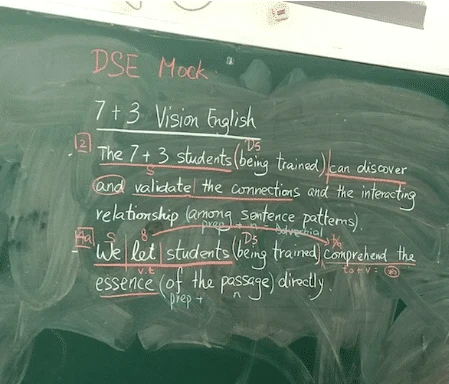 DSE Mock
7 + 3 Vision English
D5
2 The 7 + 3 students (being trained) can discover
S
and validate the connections and the interacting
relationship (among sentence patterns).
prep + n = adverbial
4a S 8 D5
We let students (being trained) comprehend the
v.t to + v =
essence (of the passage) directly.
prep + n